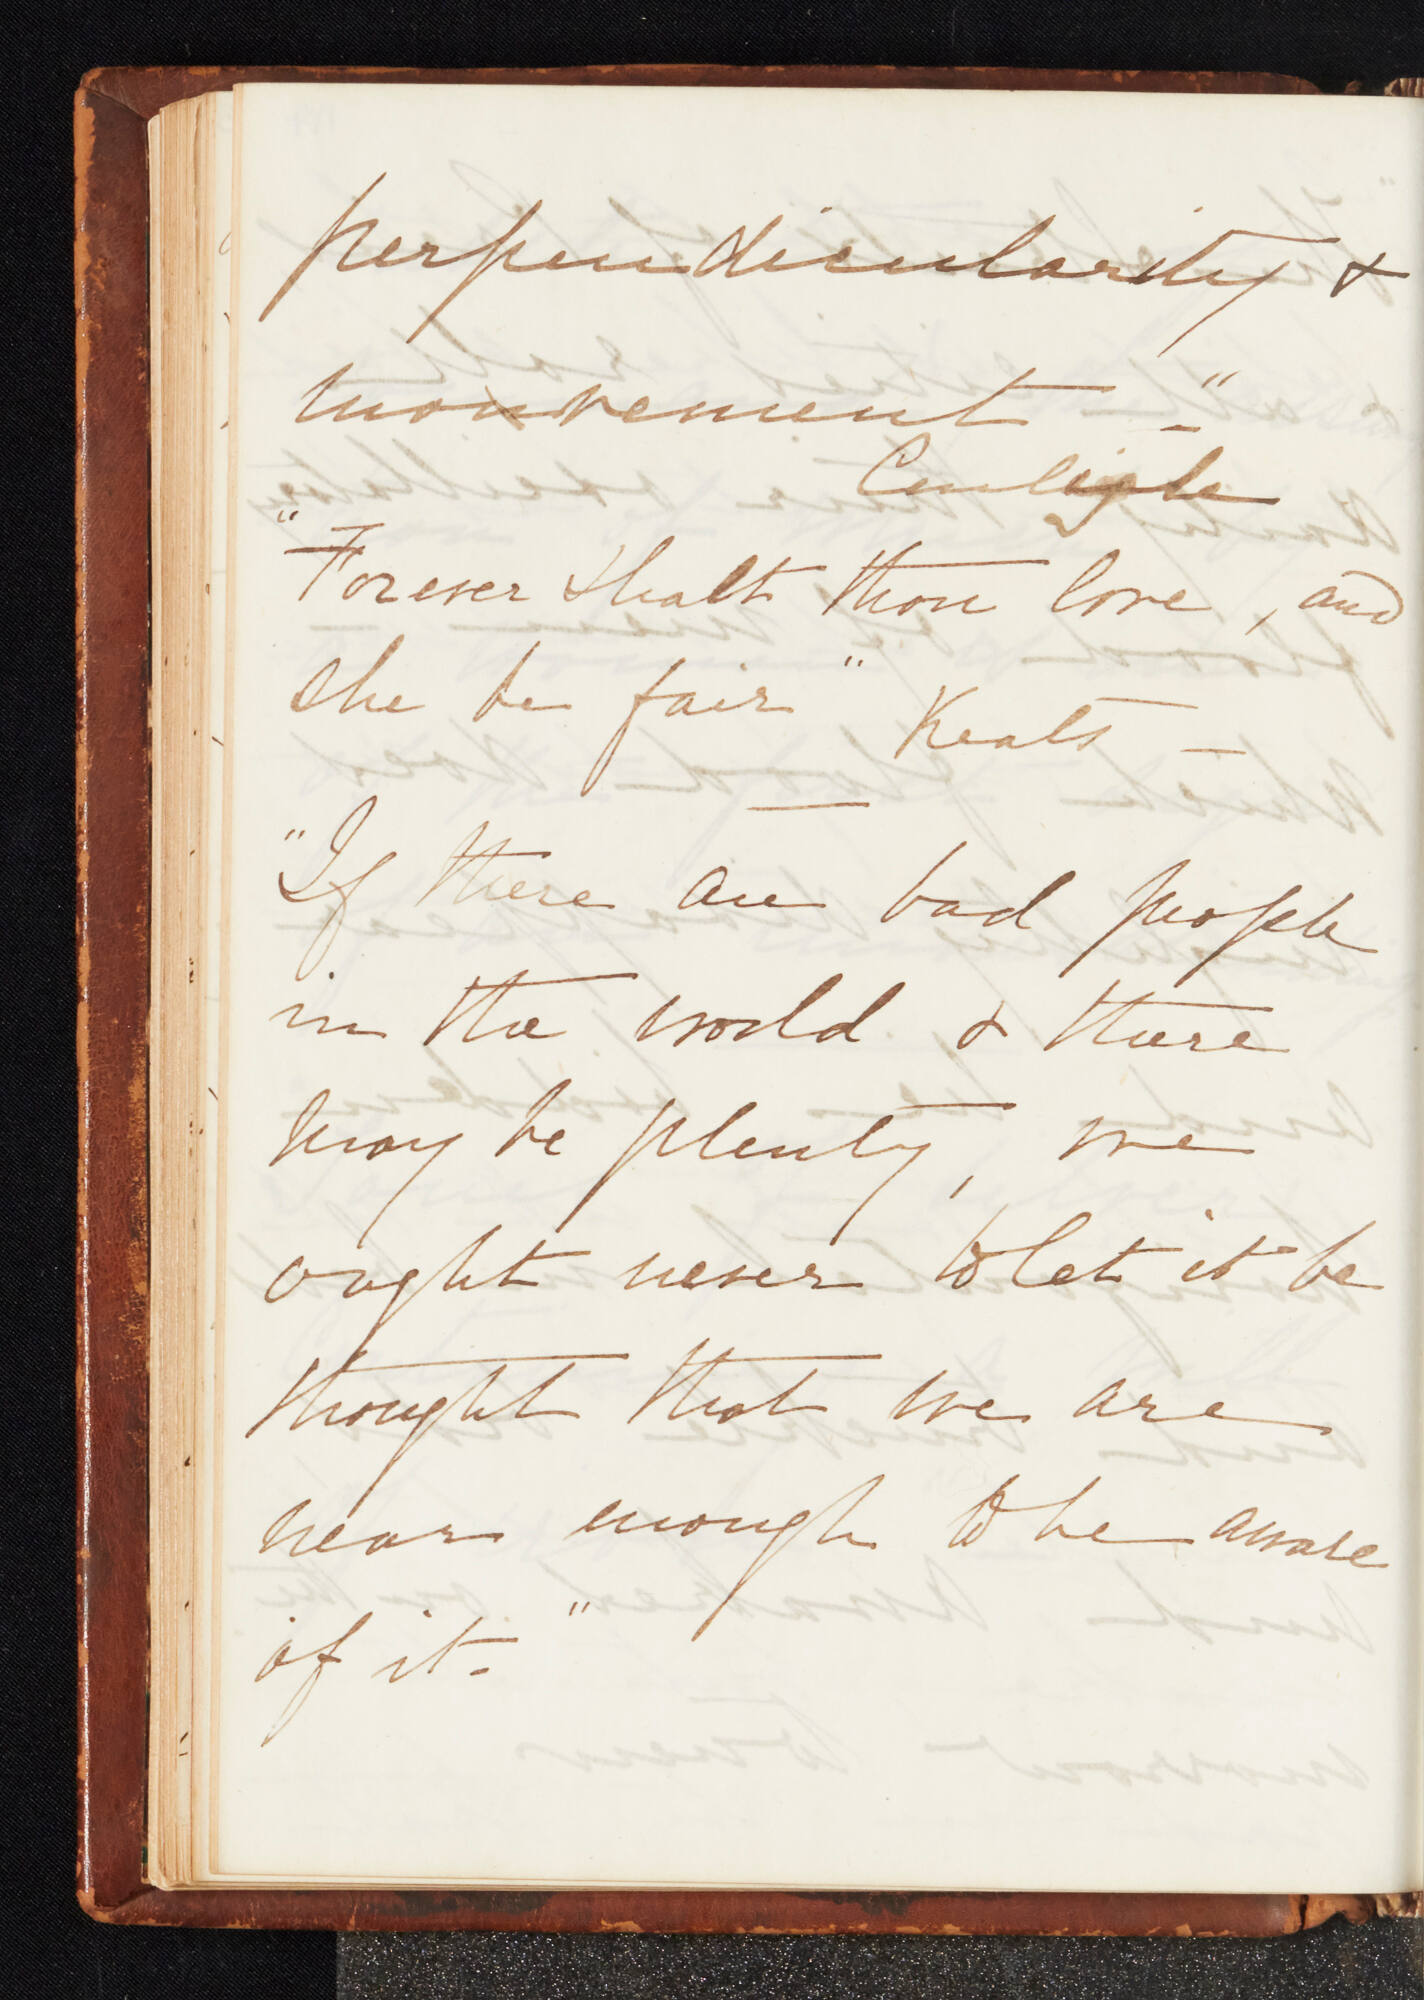 perpendicularity &
mouvement –"
Carlyle
"Forever shalt thou love, and
she be fair" Keats –
"If there are bad people
in the world & there
may be plenty, we
ought never to let it be
thought that we are
near enough to be aware
of it."